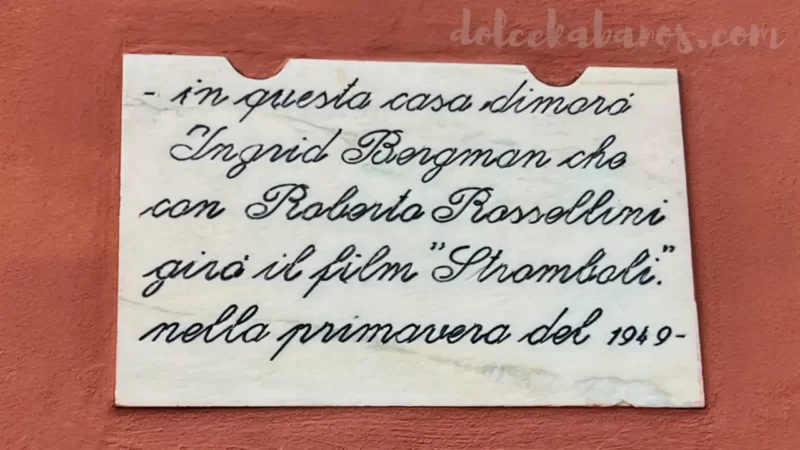 dolcekabanos.com
- in questa casa dimorò
Ingrid Bergman che
con Roberto Rossellini
girò il film "Stromboli."
nella primavera del 1949-